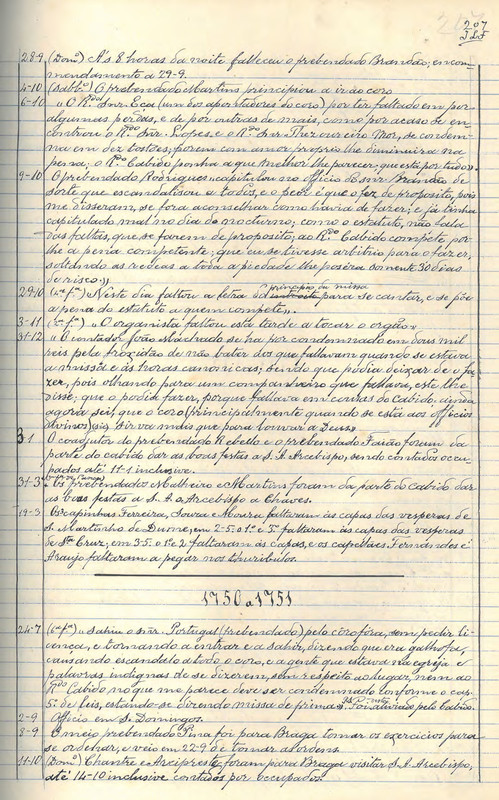 207
28-9 (Domº) Ás 8 horas da noite falleceu o prebendado Brandão; encom-
mendamento a 29-9.
4-10 (sabbº) O prebendado Martins principiou a ir ao coro
6-10 "O Rdo Snr. Eça (um dos apontadores do coro) por ter faltado em por
algumas pessoas, e de por outras de mais, como por acaso se en-
controu o Rdo Snr. Lopes, e o Rdo Snr Thezoureiro Mor, se condem-
na em dez tostões; porem com amor proprio lhe diminuira na
pena; o Rdo Cabido ponha a que melhor lhe parecer, que está por tudo".
9-10 O prebendado Rodrigues "capitulou no officio do snr. Brandão de
sorte que escandalisou a todos, e o peor é que o fez de proposito, pois
me disseram, se fora aconselhar como havia de fazer; e já tinha
capitulado mal no dia do nocturno; como o estatuto, não fala
das faltas, que se fazem de proposito, ao Rdo Cabido compete pôr-
lhe a pena competente; que eu se tivesse arbitrio para o fazer,
soltando as redeas a toda a piedade lhe pozera somente 30 dias
de risco".
29-10 (4ª fª) "Neste dia faltou a letra do introito principio da missa para se cantar, e se põe
a pena do estatuto a quem compete".
3-11 (2ª fª) "O organista faltou esta tarde a tocar o orgão".
31-12 "O contador João Machado se ha por condemnado em dous mil
reis pela froxidão de não bater dos que faltavam quando se estava
a missa e ás horas canonicas; sendo que podia deixar de o fa-
zer, pois olhando para um companheiro que faltava, este lhe
disse: que o podia fazer, porque faltava em contas do Cabido; ainda
agora sei, que o coro (principalmente quando se está aos officios
divinos) (sic) sirva mais que para louvar a Deus".
3-1 O coadjutor do prebendado Rebello e o prebendado Faião foram da
parte do cabido dar as boas festas a S. A. Arcebispo, sendo contados occu-
pados até 11-1 inclusive.
31-3 Os prebendados Malheiro e Martins foram da parte do cabido dar
as boas festas a S. A. o Arcebispo a Chaves.
19-3 Os capinhas Ferreira, Souza e Moura faltaram ás capas das vesperas de
S. Martinho de Dume, em 2-5 o 1º e 3º faltaram ás capas das vesperas
de Sta Cruz; em 3-5 o 1º e 2 faltaram ás capas, e os capellães Fernandes e
Araujo faltaram a pegar nos thuribulos.
1750 a 1751
24-7 (6ª fª) "Sahiu o snr. Portugal (prebendado) pelo côro fóra, sem pedir li-
cença, e tornando a entrar e a sahir, dizendo que era galhofa,
causando escandalo a todo o coro, e a gente que estava na egreja e
palavras indignas de se dizerem, sem respeito ao lugar, nem ao
Rdo Cabido no que me parece deve ser condemnado conforme o cap.
5º de luis, estando-se dizendo missa de prima". Foi aliviado pelo Cabido.
2-9 Officio em S. Domingos.
8-9 O meio prebendado Pena foi para Braga tomar os exercicios para
se ordenar, e veio em 22-9 de tomar as ordens.
11-10 (Domº) Chantre e Arcipreste foram para Braga visitar S. A. Arcebispo,
até 14-10 inclusive contados por occupados.